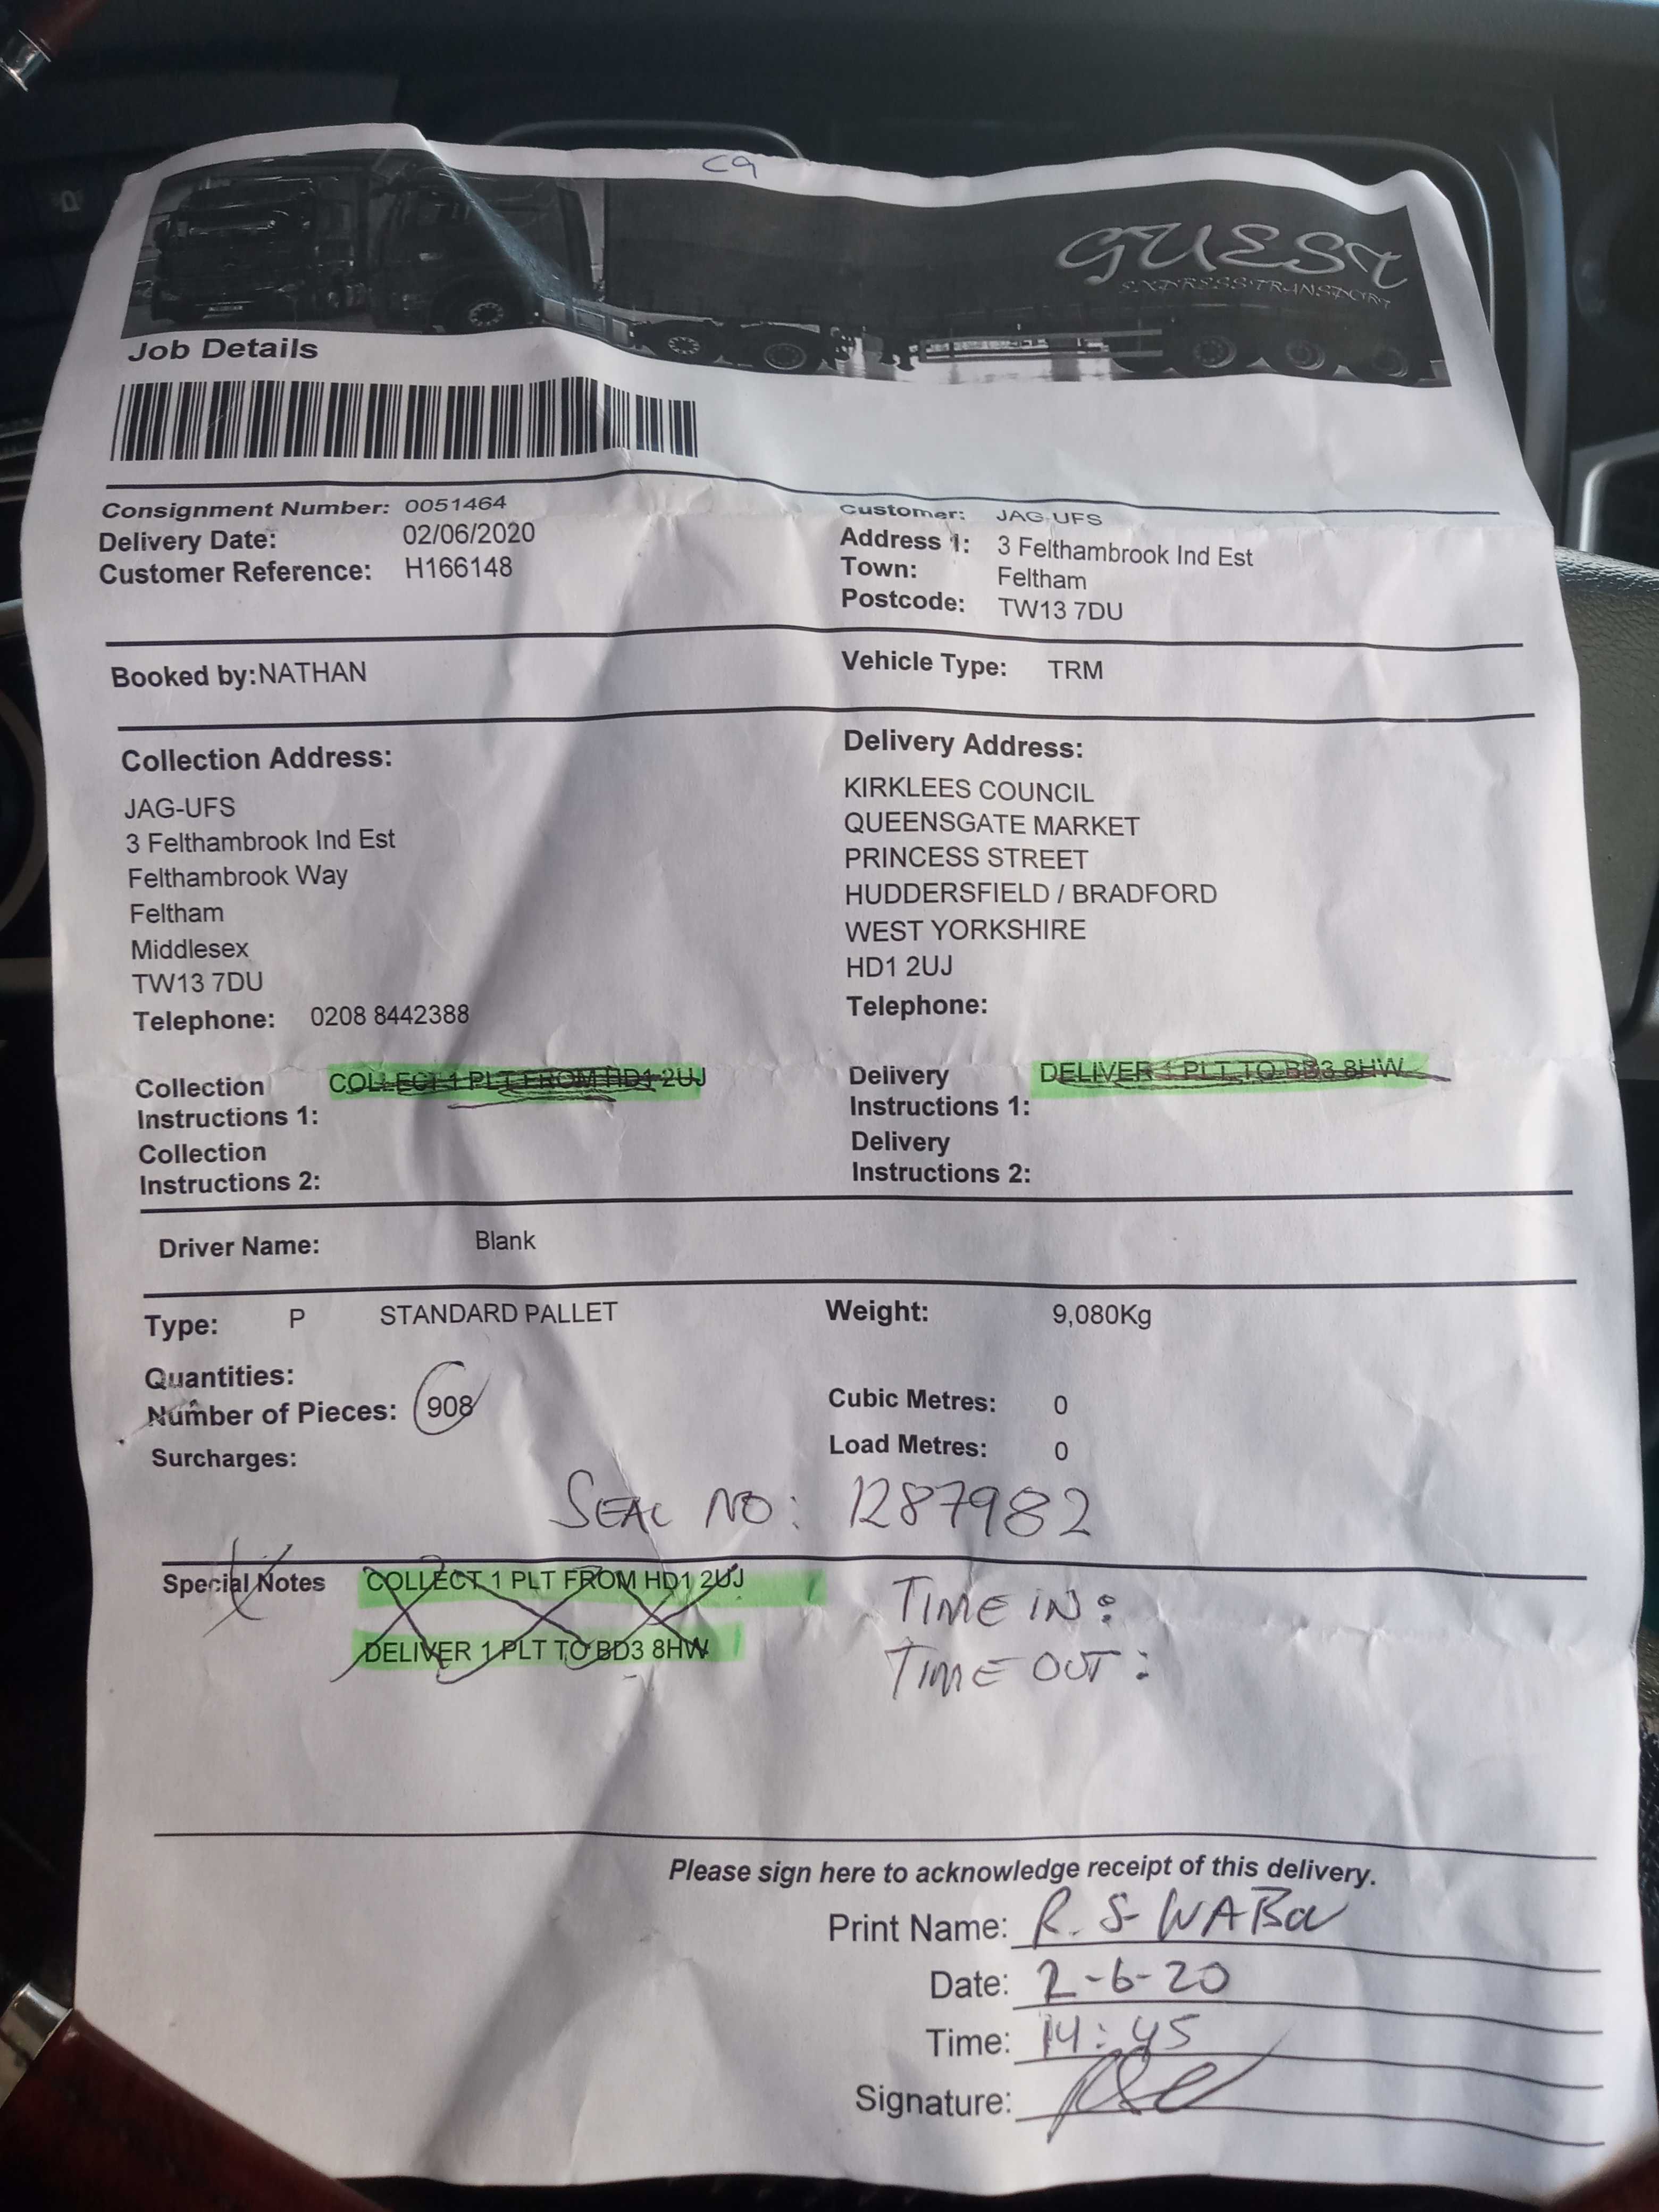 C9
GUEST
EXPRESS TRANSPORT
Job Details
Consignment Number: 0051464
Delivery Date: 02/06/2020
Customer Reference: H166148
Customer: JAG-UFS
Address 1: 3 Felthambrook Ind Est
Town: Feltham
Postcode: TW13 7DU
Booked by: NATHAN
Vehicle Type: TRM
Collection Address:
JAG-UFS
3 Felthambrook Ind Est
Felthambrook Way
Feltham
Middlesex
TW13 7DU
Telephone: 0208 8442388
Delivery Address:
KIRKLEES COUNCIL
QUEENSGATE MARKET
PRINCESS STREET
HUDDERSFIELD / BRADFORD
WEST YORKSHIRE
HD1 2UJ
Telephone:
Collection COLLECT 1 PLT FROM HD1 2UJ
Instructions 1:
Collection
Instructions 2:
Delivery DELIVER 1 PLT TO BD3 8HW
Instructions 1:
Delivery
Instructions 2:
Driver Name: Blank
Type: P STANDARD PALLET
Weight: 9,080Kg
Quantities:
Number of Pieces: 908
Cubic Metres: 0
Surcharges:
Load Metres: 0
SEAL NO: 1287982
Special Notes COLLECT 1 PLT FROM HD1 2UJ
DELIVER 1 PLT TO BD3 8HW
TIME IN:
TIME OUT:
Please sign here to acknowledge receipt of this delivery.
Print Name: R. S
Date: 2-6-20
Time: 14:45
Signature: